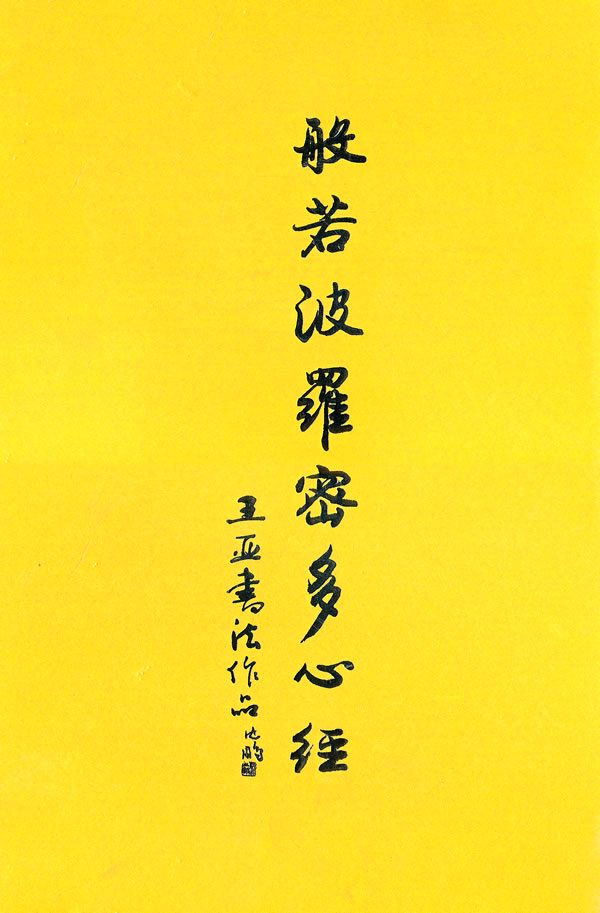 般若波羅密多心經
王亚書法作品沈鹏